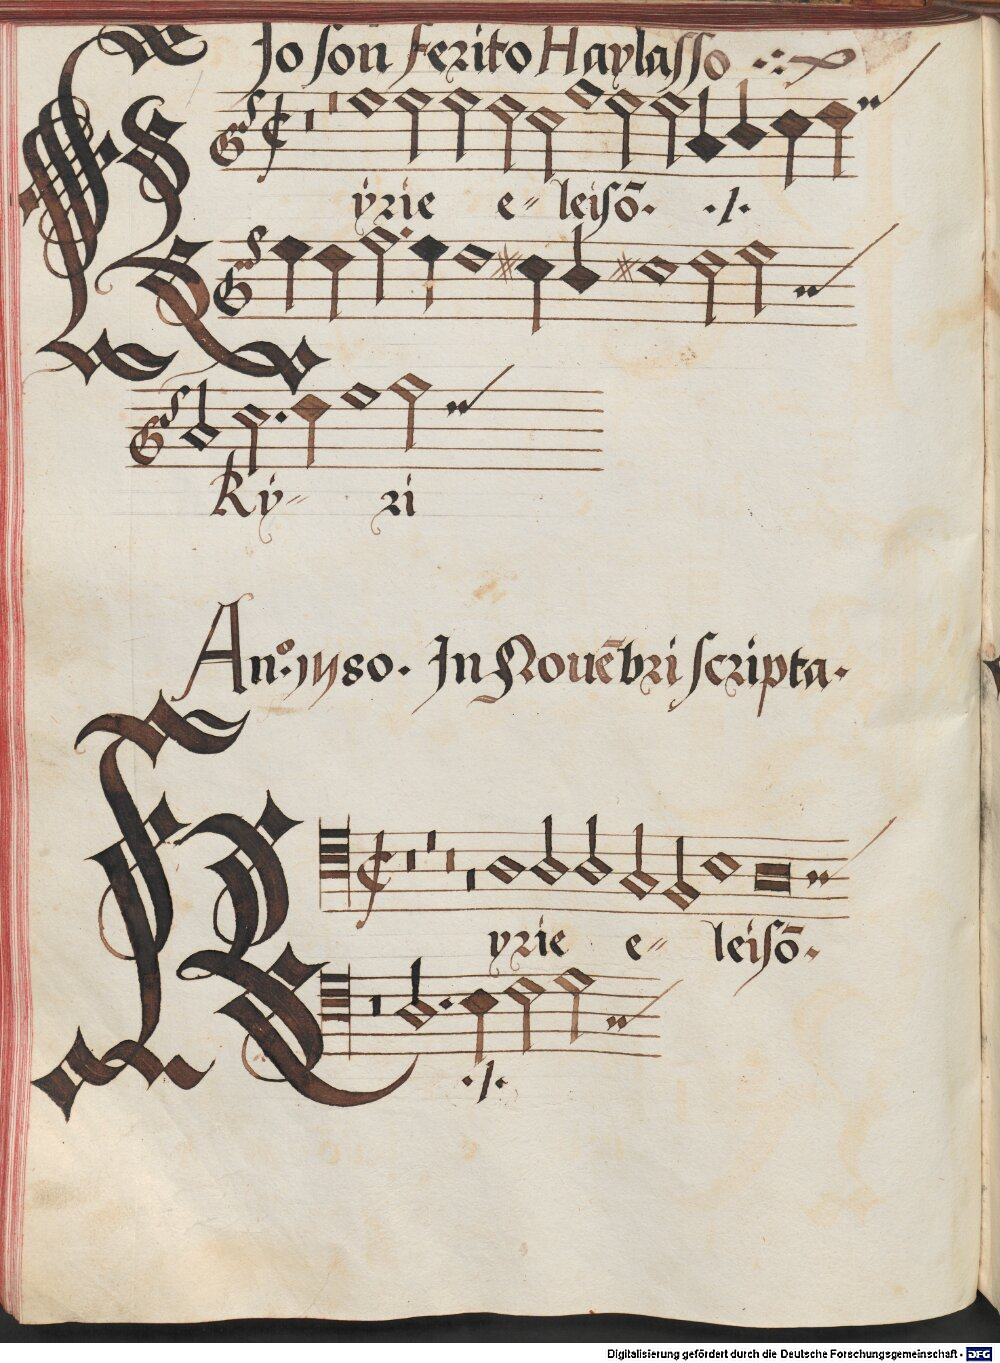 Jo son ferito Haylasso
yrie e= leisō. ./.
Ky= ri
An.º 1580. In Nouēbri scripta.
yrie e= leisō.
./.
Digitalisierung gefördert durch die Deutsche Forschungsgemeinschaft - DFG